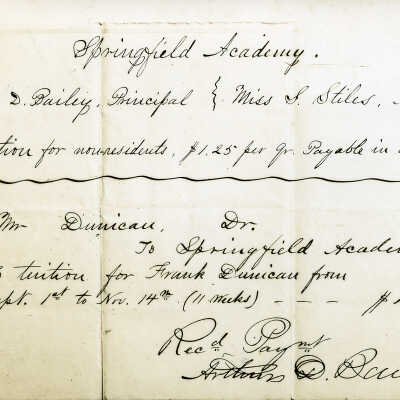 Springfield Academy.
D. Bailey, Principal { Miss S. Stiles,
tion for non-residents, $1.25 per qr. Payable in
Mr Dunican, Dr.
To Springfield Academ
tuition for Frank Dunican from
pt. 1st to Nov. 14th (11 weeks) - - - $
Rec'd Paymt
Arthur D. Bai